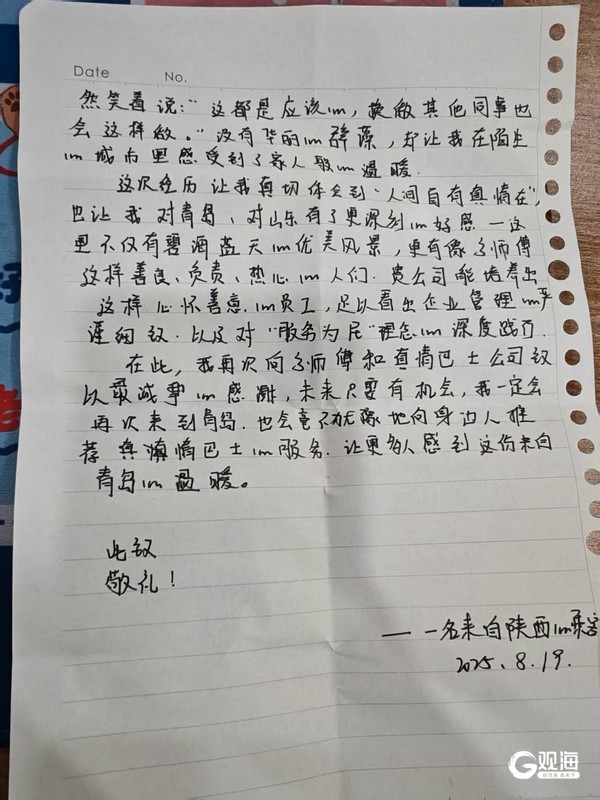 Date
No.
然笑着说：“这都是应该的，换做其他同事也
会这样做。”没有华丽的辞藻，却让我在陌生
的城市里感受到了家人般的温暖.
这次经历让我真切体会到“人间自有真情在”，
也让我对青岛、对山东有了更深刻的好感—这
里不仅有碧海蓝天的优美风景，更有像于师傅
这样善良、负责、热心的人们.贵公司能培养出
这样心怀善意的员工，足以看出企业管理的严
谨细致.以及对“服务为民”理念的深度践行.
在此，我再次向于师傅和真情巴士公司致
以最诚挚的感谢，未来只要有机会，我一定会
再次来到青岛.也会毫不犹豫地向身边人推
荐真情巴士的服务.让更多人感到这份来自
青岛的温暖。
此致
敬礼！
——一名来自陕西的乘客
2025.8.19.
观海